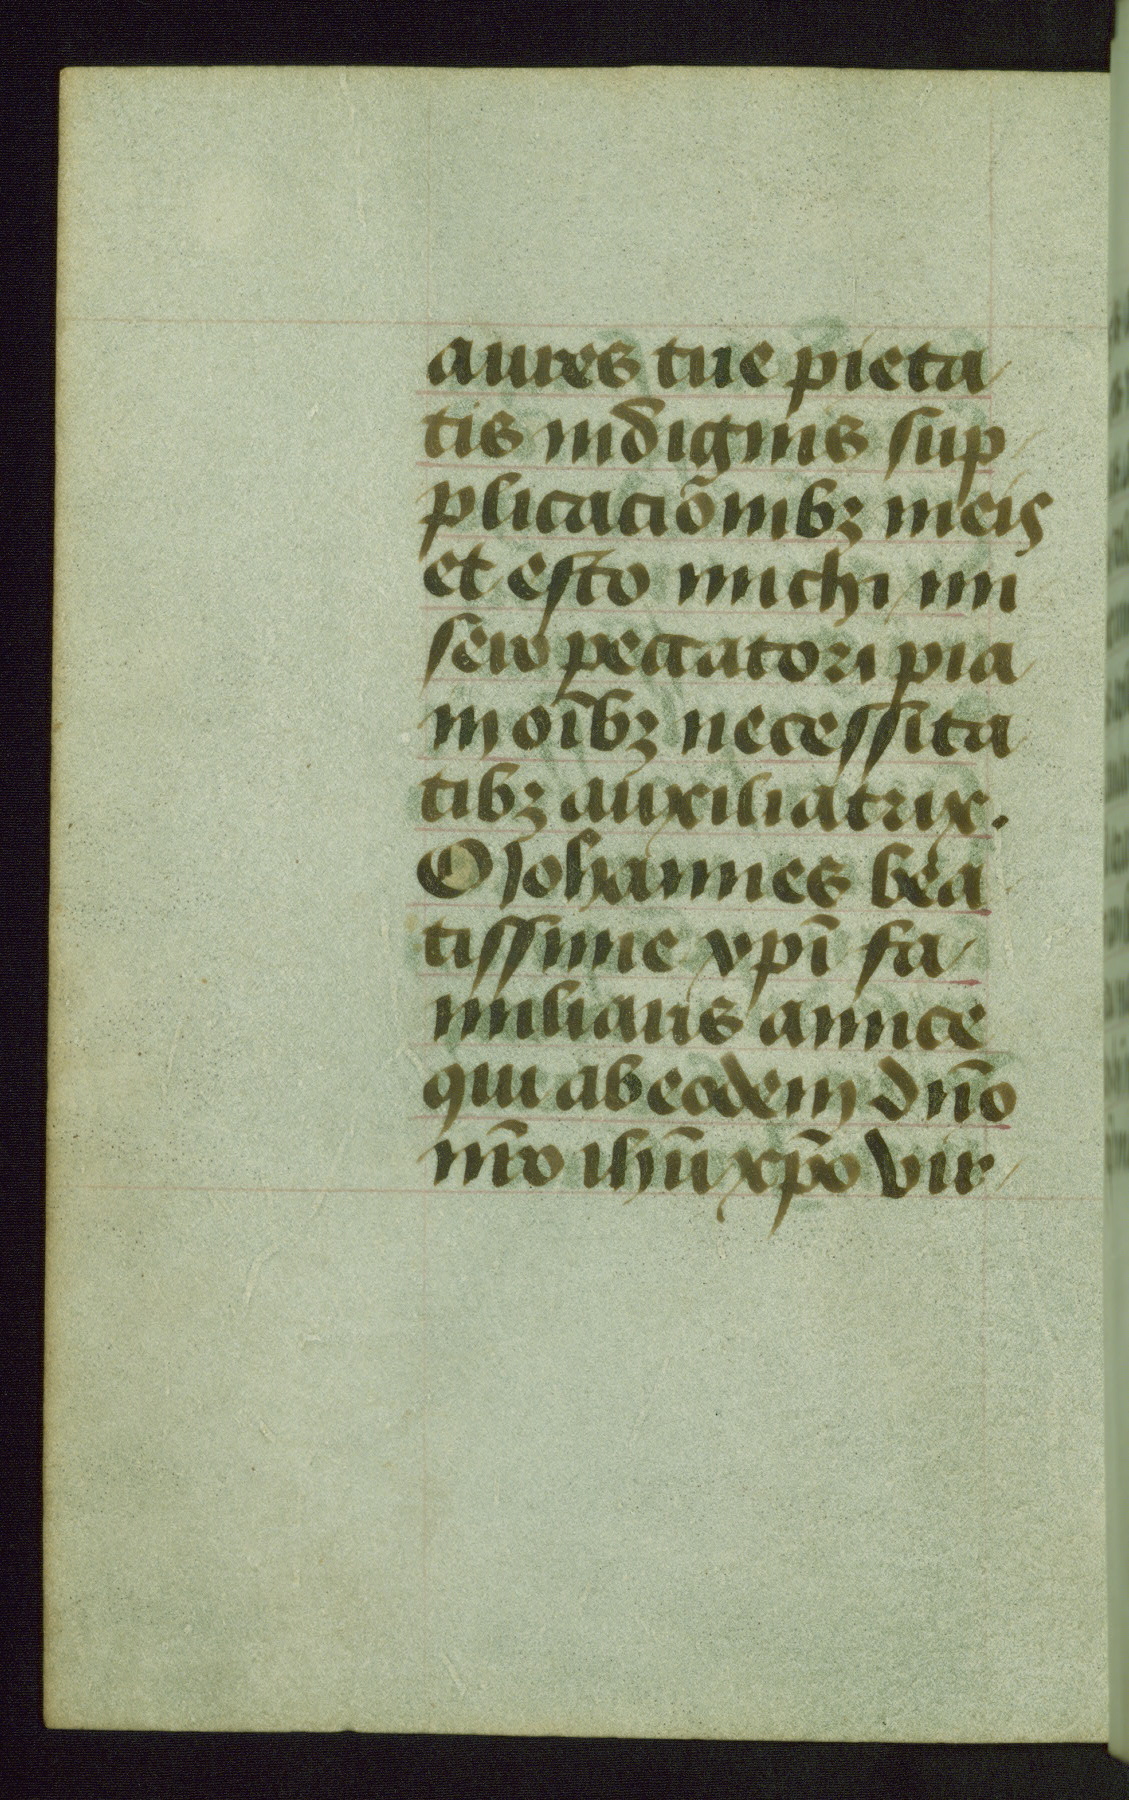 aures tue pieta
tis indignis sup
plicaciōnibꝫ meis
et esto michi mi
sero peccatori pia
in oībꝫ necessita
tibꝫ auxiliatrix.
O Johannes bea
tissime xpī fa
miliaris amice
qui ab eodem dn̄o
nr̄o ihū xp̄o vir